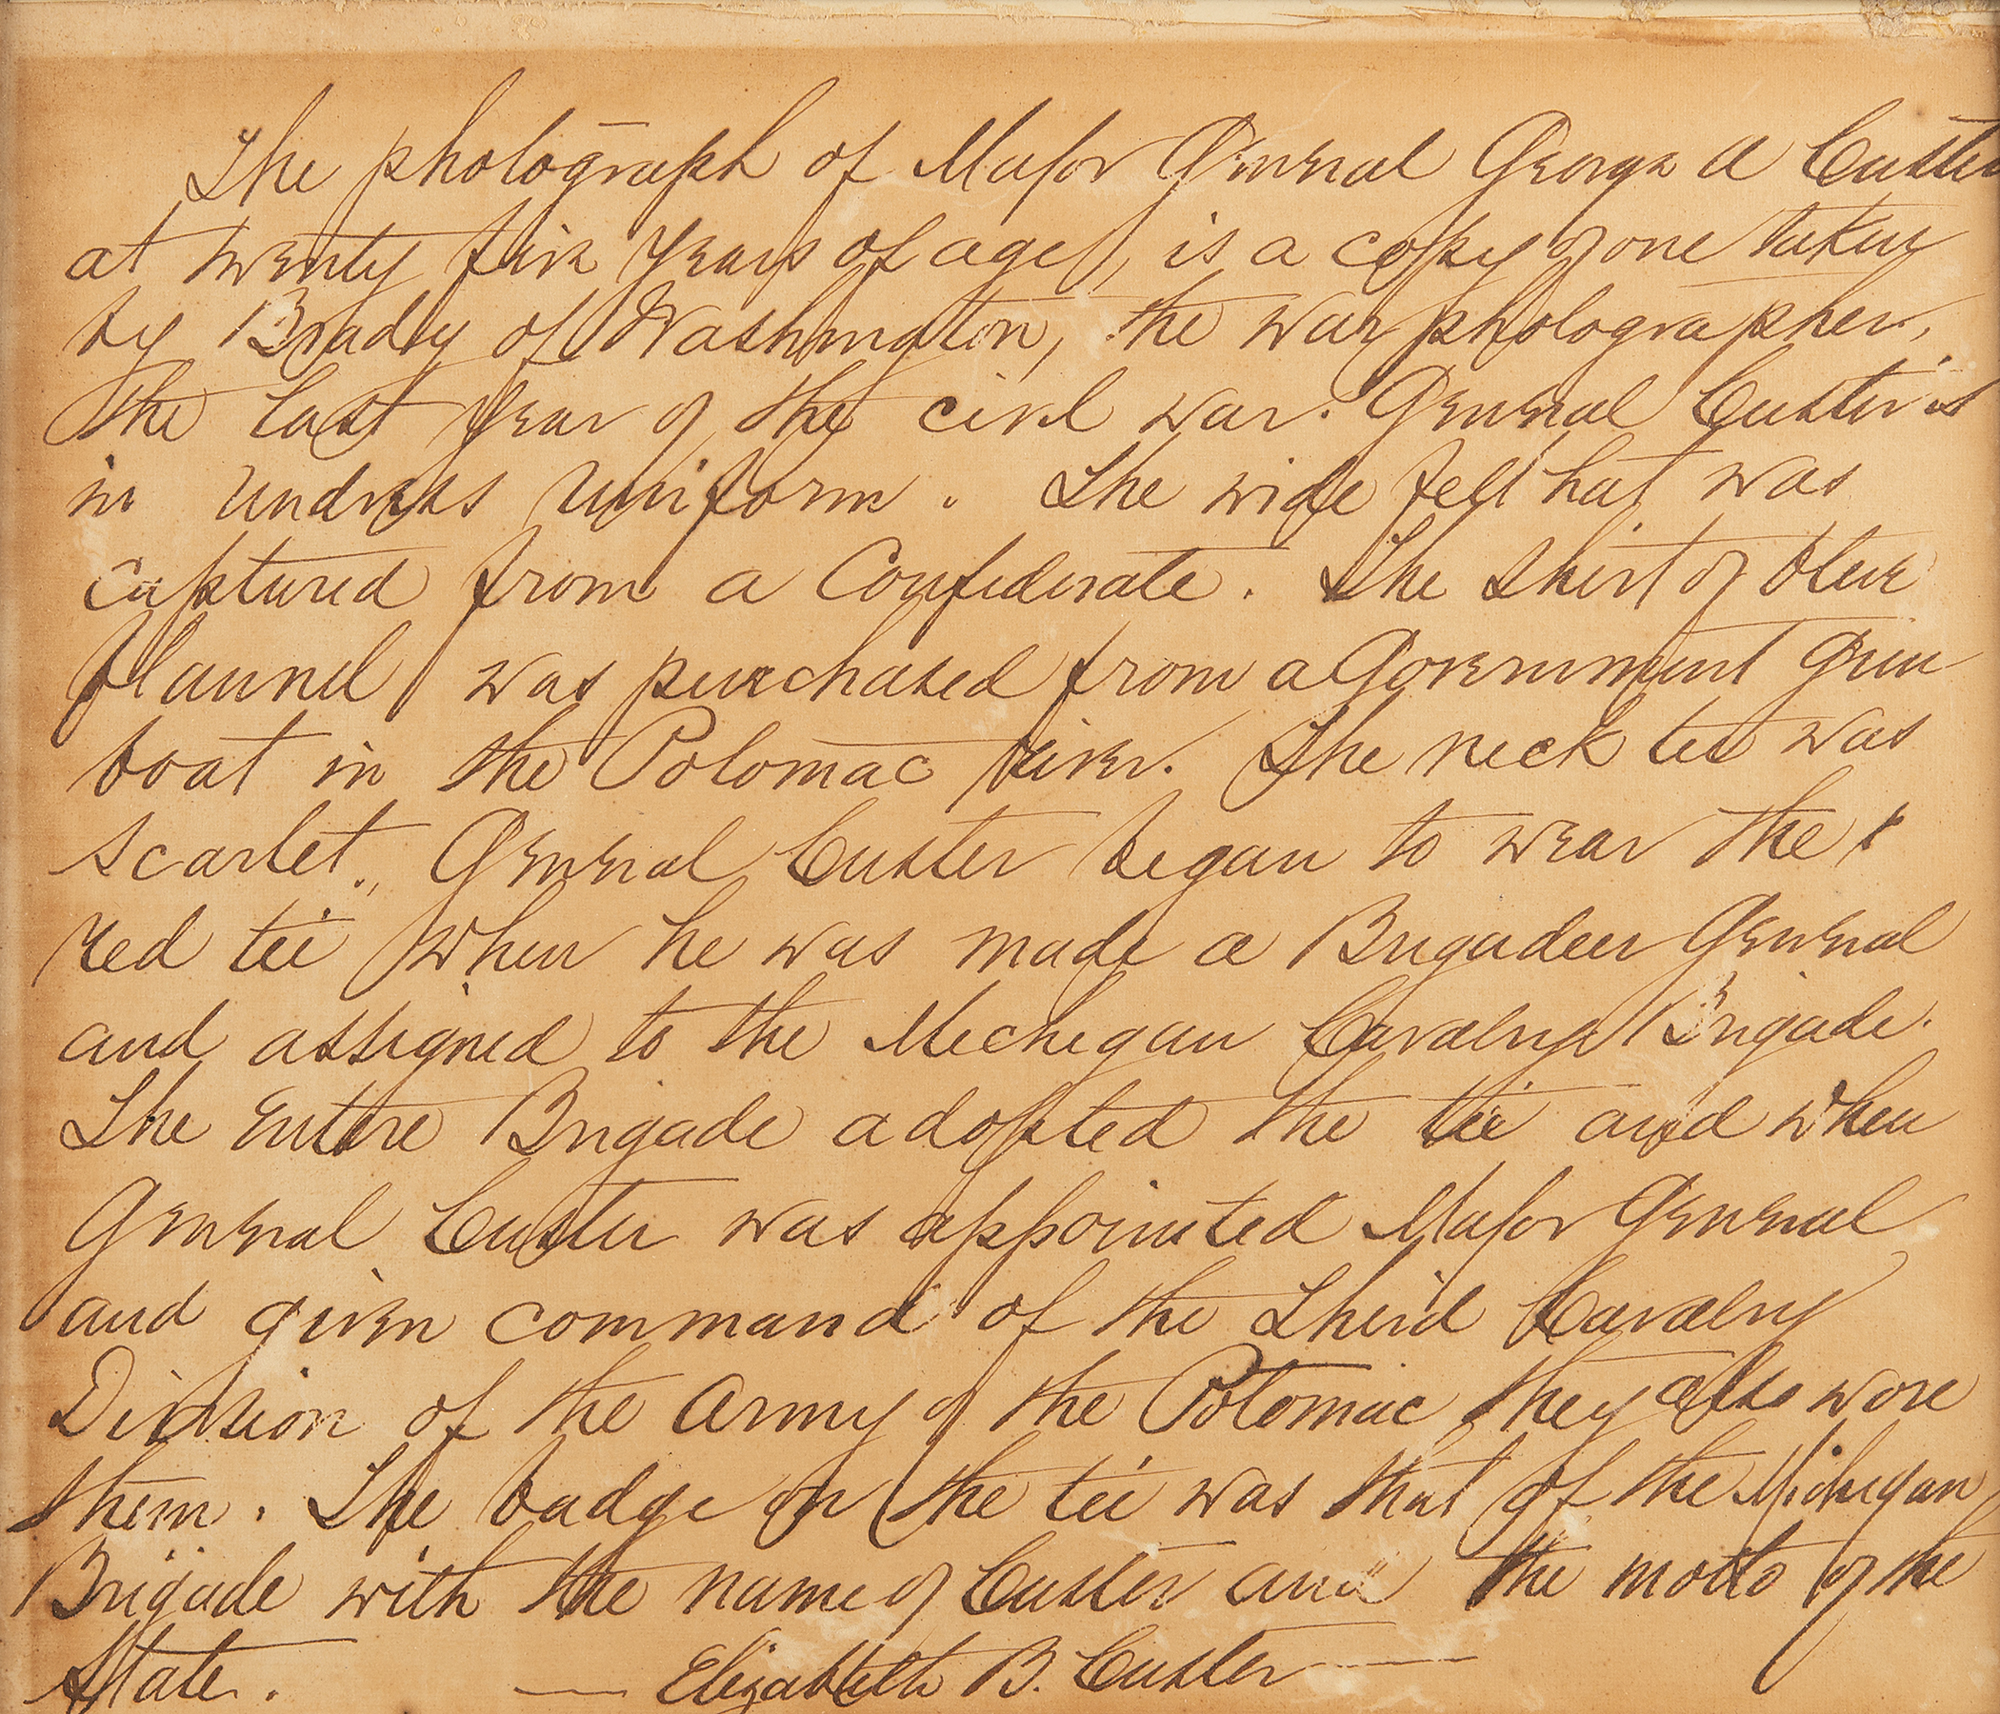 The photograph of Major General George A Custer
at twenty five years of age, is a copy of one taken
by Brady of Washington, the war photographer,
the last year of the civil war. General Custer is
in undress uniform. The wide felt hat was
captured from a Confederate. The shirt of blue
flannel was purchased from a Government Gun
boat in the Potomac river. The neck tie was
scarlet. General Custer began to wear the
red tie when he was made a Brigadeer General
and assigned to the Mechegan Cavalry Brigade.
The entire Brigade adopted the tie and when
General Custer was appointed Major General
and given command of the Third Cavalry
Division of the Army of the Potomac they also wore
them. The badge on the tie was that of the Michigan
Brigade with the name of Custer and the motto of the
State.
— Elizabeth B. Custer —